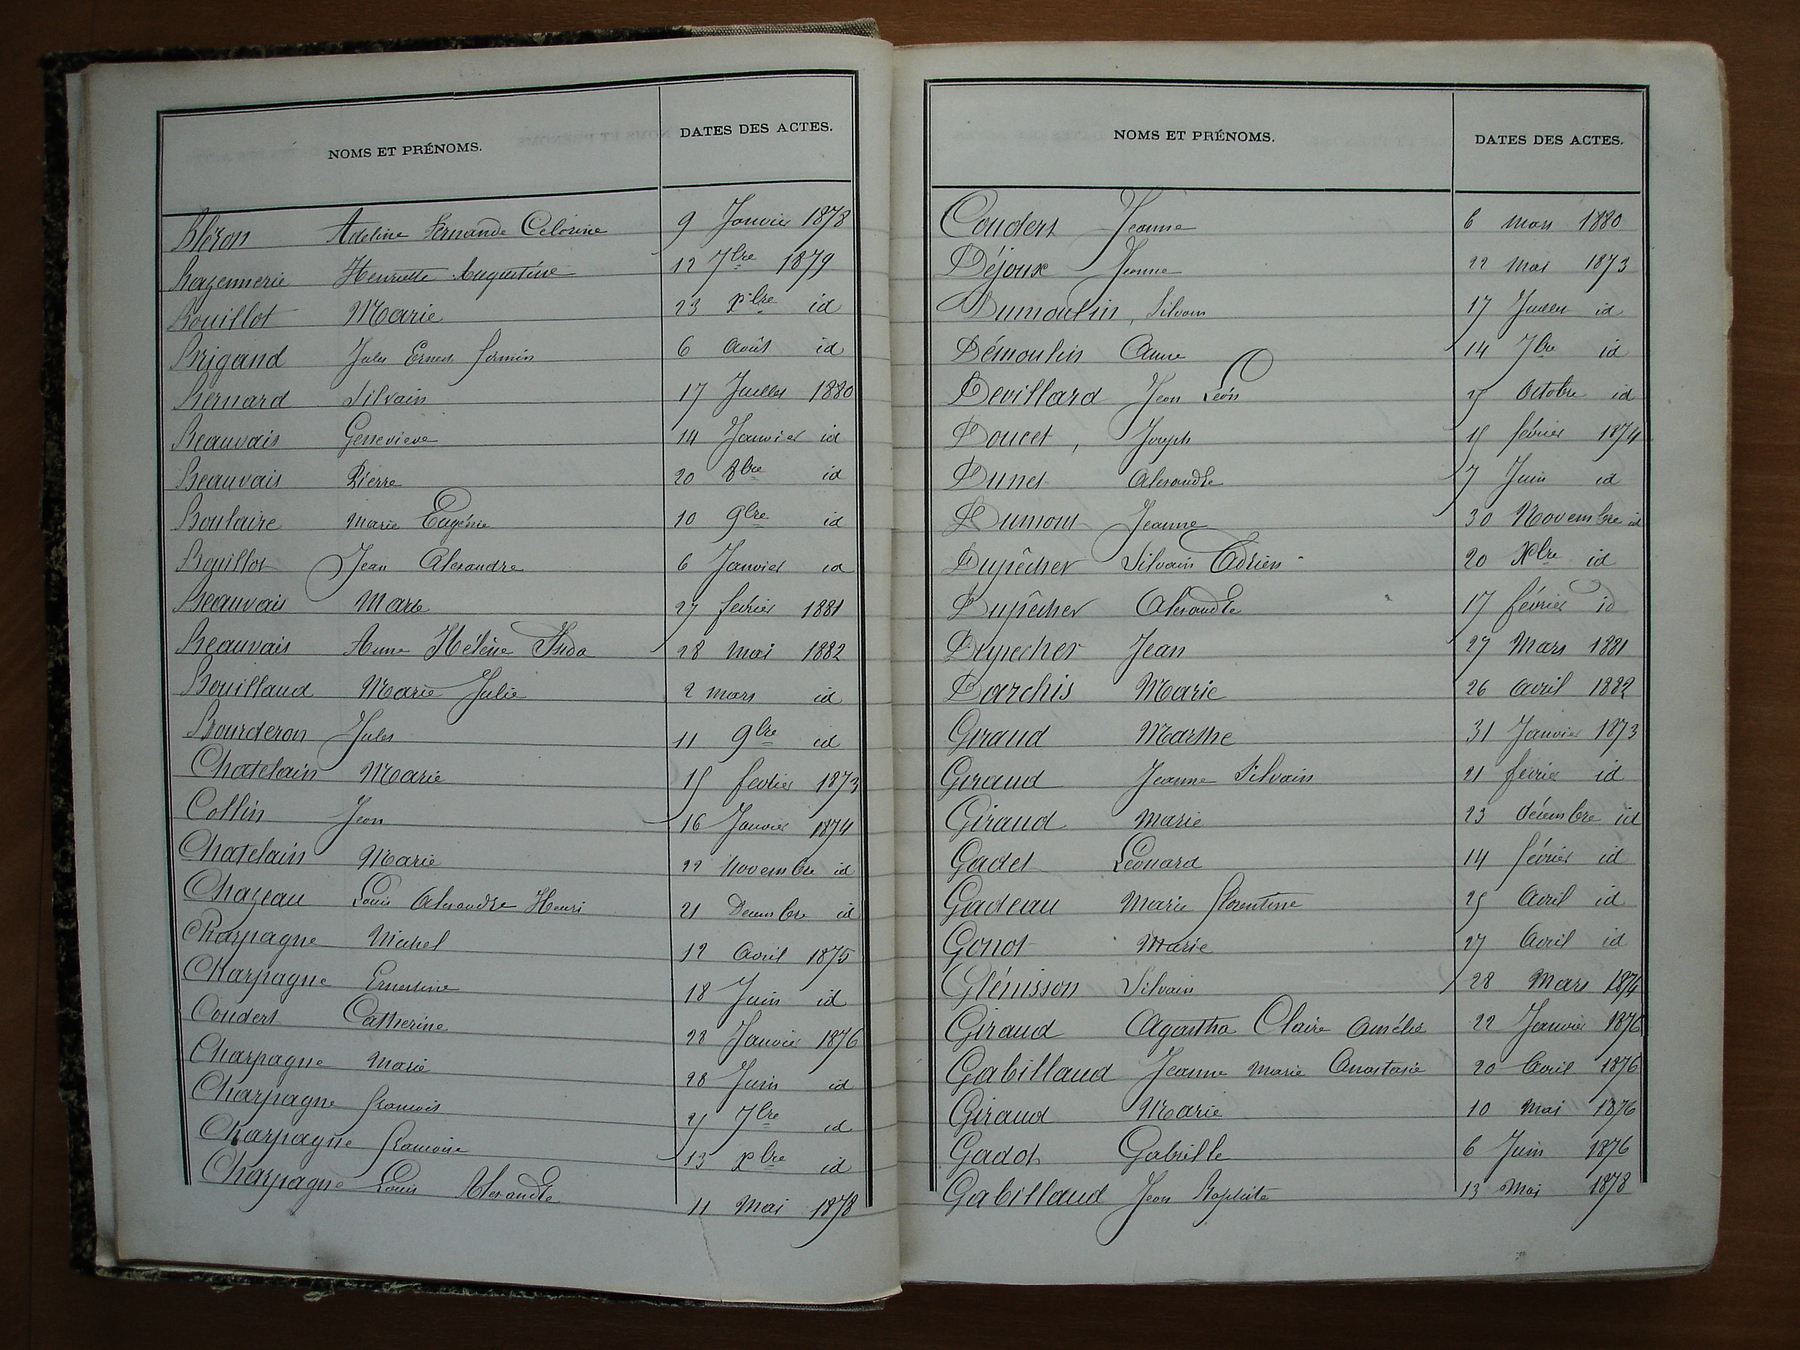 NOMS ET PRÉNOMS. DATES DES ACTES.
Bléron Adeline Fernande Célorine 9 Janvier 1878
Bazennerie Henriette Augustine 12 7bre 1879
Bouillot Marie 23 Xbre id
Brigand Jules Ernest Firmin 6 Août id
Bernard Silvain 17 Juillet 1880
Beauvais Geneviève 14 Janvier id
Beauvais Pierre 20 8bre id
Boulaire Marie Eugénie 10 9bre id
Bouillot Jean Alexandre 6 Janvier id
Beauvais Marie 27 février 1881
Beauvais Anne Hélène 28 Mai 1882
Bouillaud Marie Julie 2 mars id
Bourderon Jules 11 9bre id
Chatelain Marie 15 février 1873
Collin Jean 16 Janvier 1874
Chatelain Marie 22 Novembre id
Chazeau Louis Alexandre Henri 21 Décembre id
Charpagne Michel 12 Avril 1875
Charpagne Ernestine 18 Juin id
Coudert Catherine 28 Janvier 1876
Charpagne Marie 28 Juin id
Charpagne François 25 7bre id
Charpagne Françoise 13 Xbre id
Charpagne Louis Alexandre 11 Mai 1878
NOMS ET PRÉNOMS. DATES DES ACTES.
Coudert Jeanne 6 Mars 1880
Déjoux Jeanne 22 Mai 1873
Dumoulin, Silvain 17 Juillet id
Démoulin Anne 14 7bre id
Devillard Jean Léon 25 Octobre id
Doucet, Joseph 15 février 1874
Dunet Alexandre 7 Juin id
Dumont Jeanne 30 Novembre id
Dupêcher Silvain Adrien 20 Xbre id
Dupêcher Alexandre 17 février id
Dupêcher Jean 27 Mars 1881
Darchis Marie 26 Avril 1882
Giraud Marthe 31 Janvier 1873
Giraud Jeanne Silvain 21 février id
Giraud Marie 23 décembre id
Gadet Léonard 14 février id
Gadeau Marie Florentine 25 Avril id
Gonot Marie 27 Avril id
Glénisson Silvain 28 Mars 1874
Giraud Agatha Claire Amélie 22 Janvier 1876
Gabillaud Jeanne Marie Anastasie 20 Avril 1876
Giraud Marie 10 Mai 1876
Gadot Gabrielle 6 Juin 1876
Gabillaud Jean Baptiste 13 Mai 1878